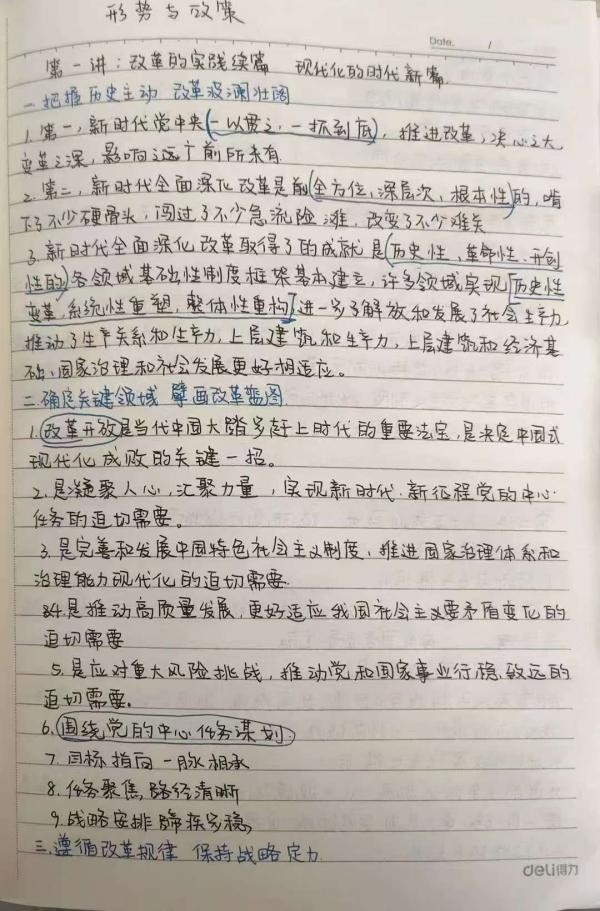 形势与政策
Date. /
第一讲：改革的实践续篇 现代化的时代新篇
一.把握历史主动 改革波澜壮阔
1.第一，新时代党中央(一以贯之、一抓到底)，推进改革，决心之大，
变革之深，影响之远广前所未有
2.第二，新时代全面深化改革是前(全方位、深层次、根本性)的，啃
下了不少硬骨头，闯过了不少急流险滩，改变了不少难关
3.新时代全面深化改革取得了的成就是(历史性、革命性、开创
性的)各领域基础性制度框架基本建立，许多领域实现[历史性
变革，系统性重塑，整体性重构]进一步了解放和发展了社会生产力，
推动了生产关系和生产力，上层建筑和生产力，上层建筑和经济基
础，国家治理和社会发展更好相适应。
二.确定关键领域 擘画改革蓝图
1.改革开放是当代中国大踏步赶上时代的重要法宝，是决定中国式
现代化成败的关键一招。
2.是凝聚人心，汇聚力量，实现新时代.新征程党的中心
任务的迫切需要。
3.是完善和发展中国特色社会主义制度，推进国家治理体系和
治理能力现代化的迫切需要.
4.是推动高质量发展，更好适应我国社会主义要矛盾变化的
迫切需要
5.是应对重大风险挑战，推动党和国家事业行稳致远的
迫切需要。
6.围绕党的中心任务谋划
7.目标指向一脉相承
8.任务聚焦路径清晰
9.战略安排蹄疾步稳
三.遵循改革规律 保持战略定力
deli得力